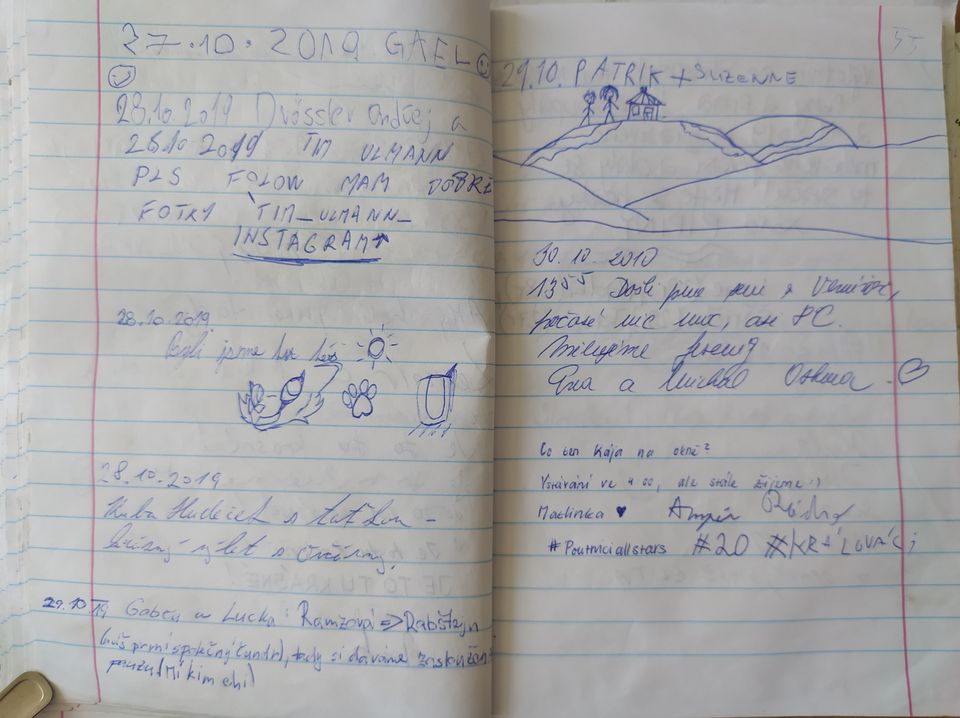 27.10.2019 GAEL
28.10.2019 Drössler Ondřej a
28.10 2019 TIM ULMANN
PLS FOLOW MAM DOBRÉ
FOTKY TIM_ULMANN_
INSTAGRAM
28.10.2019.
Byli jsme tu
28.10.2019
Kuba Hudeček s taťkou -
výlet s
29.10.19 Gabča a Lucka: Ramzová => Rabštejn
(náš první společný čundr), tedy si dáváme zaslouženou
pauzu (Mikimchi)
55
29.10. PATRIK + SUZENNE
30. 10. 2010
13 55 Došli jsme
počasí nic moc, ale PC.
Milujeme
a Michal
Co ten Kája na okně?
Vstávání ve 4 00, ale stále žijeme :)
Mařinka ♥
#Poutniciallstars #20 #KRÁLOVÁCI